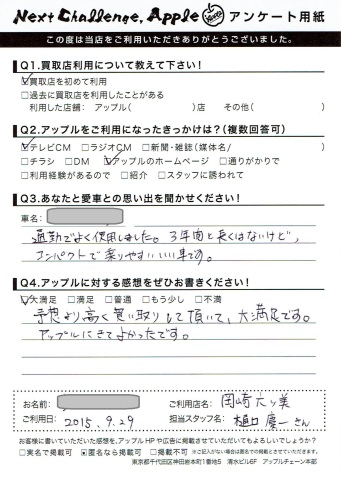 Next Challenge, Apple アンケート用紙
この度は当店をご利用いただきありがとうございました。
Q1.買取店利用について教えて下さい!
☑買取を初めて利用
□過去に買取店を利用したことがある
利用した店舗: アップル( )店 その他( )
Q2.アップルをご利用になったきっかけは?(複数回答可)
☑テレビCM □ラジオCM □新聞・雑誌(媒体名/ )
□チラシ □DM ☑アップルのホームページ □通りがかりで
□利用経験があるので □紹介 □スタッフに誘われて
Q3.あなたと愛車との思い出を聞かせください!
車名:
通勤でよく使用しました。3年間と長くはないけど、
コンパクトで乗りやすいいい車です。
Q4.アップルに対する感想をぜひお書きください!
☑大満足 □満足 □普通 □もう少し □不満
予想より高く買い取りして頂いて、大満足です。
アップルにきてよかったです。
お名前: ご利用店名: 岡崎六ツ美
ご利用日: 2015.9.29 担当スタッフ名: 樋口慶一さん
お客様に書いていただいた感想を、アップルHPや広告に掲載させていただいてもよろしいでしょうか?
□実名で掲載可 ☒匿名なら掲載可 □掲載不可 ※ご記入がない場合は匿名での掲載とさせていただきます。
東京都千代田区神田岩本町1番地5 清水ビル6F アップルチェーン本部